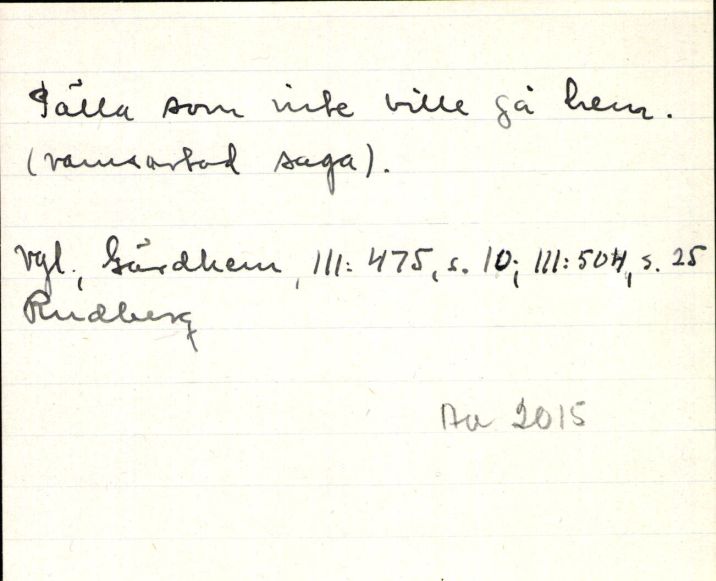 Pålla som inte ville gå hem.
(vanvårdad saga).
Vgl., Gärdhem, III: 475, s. 10; III: 504, s. 25
Rudberg
Aa 2015